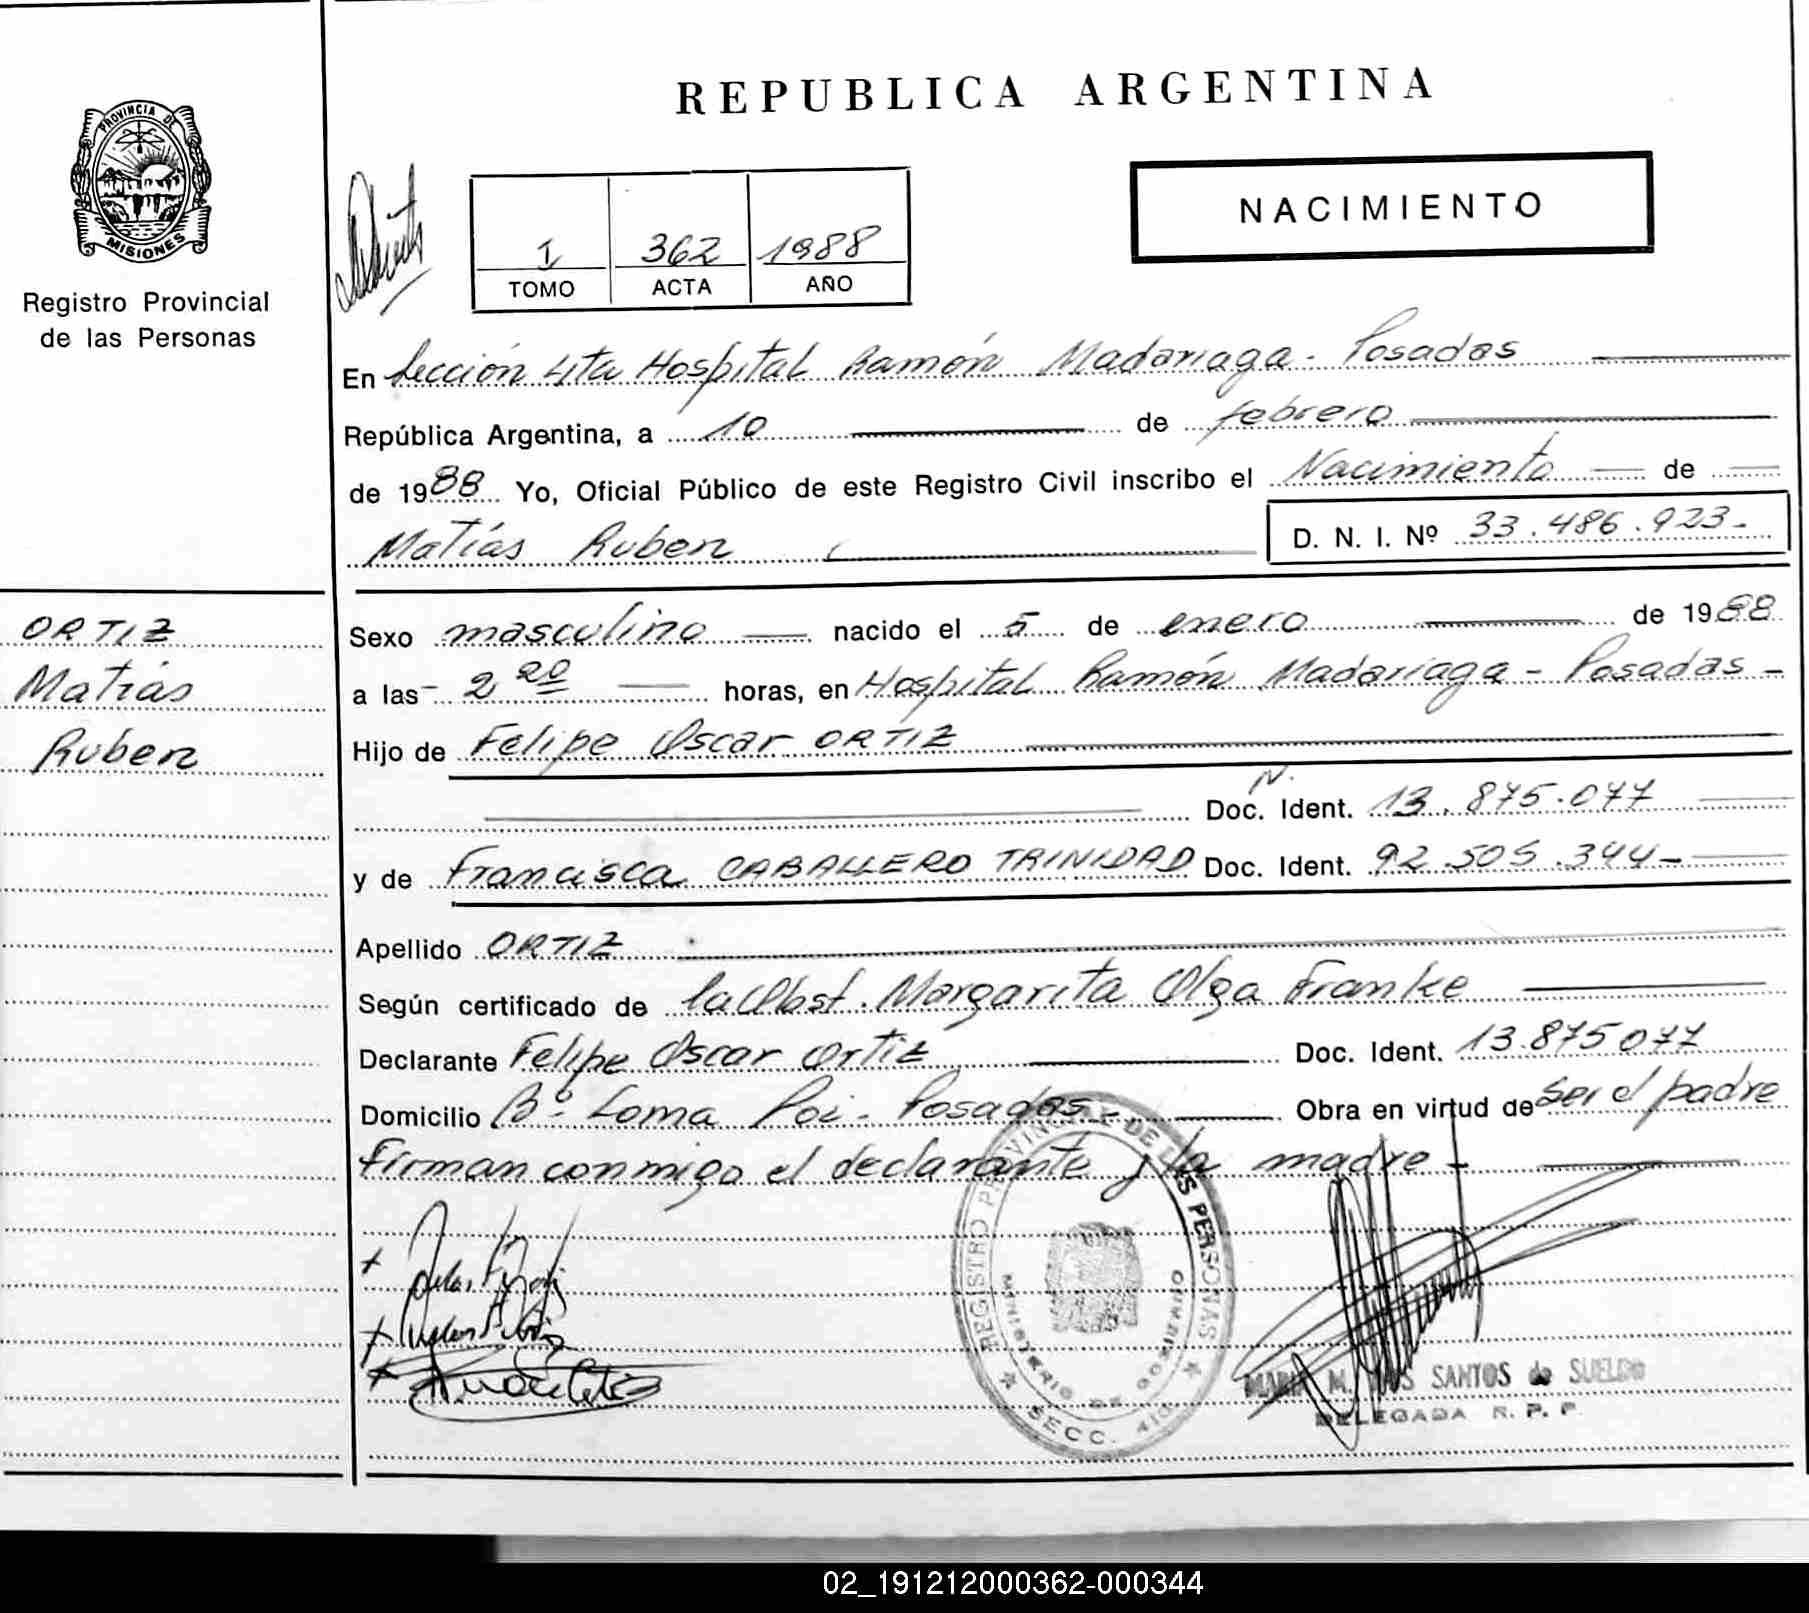 PROVINCIA DE
MISIONES
Registro Provincial
de las Personas
ORTIZ
Matías
Ruben
REPUBLICA ARGENTINA
NACIMIENTO
I 362 1988
TOMO ACTA AÑO
En Sección 4ta Hospital Ramón Madariaga - Posadas
República Argentina, a 10 de febrero
de 1988 Yo, Oficial Público de este Registro Civil inscribo el Nacimiento de
Matías Ruben D. N. I. Nº 33.486.923-
Sexo masculino nacido el 5 de enero de 1988
a las 2 20 horas, en Hospital Ramón Madariaga - Posadas -
Hijo de Felipe Oscar ORTIZ
N.
Doc. Ident. 13.875.077
y de Francisca CABALLERO TRINIDAD Doc. Ident. 92.505.344-
Apellido ORTIZ
Según certificado de la Obst. Margarita Olga Franke
Declarante Felipe Oscar Ortiz Doc. Ident. 13.875077
Domicilio Bº Loma Poi - Posadas - Obra en virtud de ser el padre
Firman conmigo el declarante y la madre -
REGISTRO PROVINCIAL DE LAS PERSONAS
MINISTERIO DE GOBIERNO
SECC. 4ta
MARIA M. SANTOS de SUELDO
DELEGADA R. P. P.
02_191212000362-000344